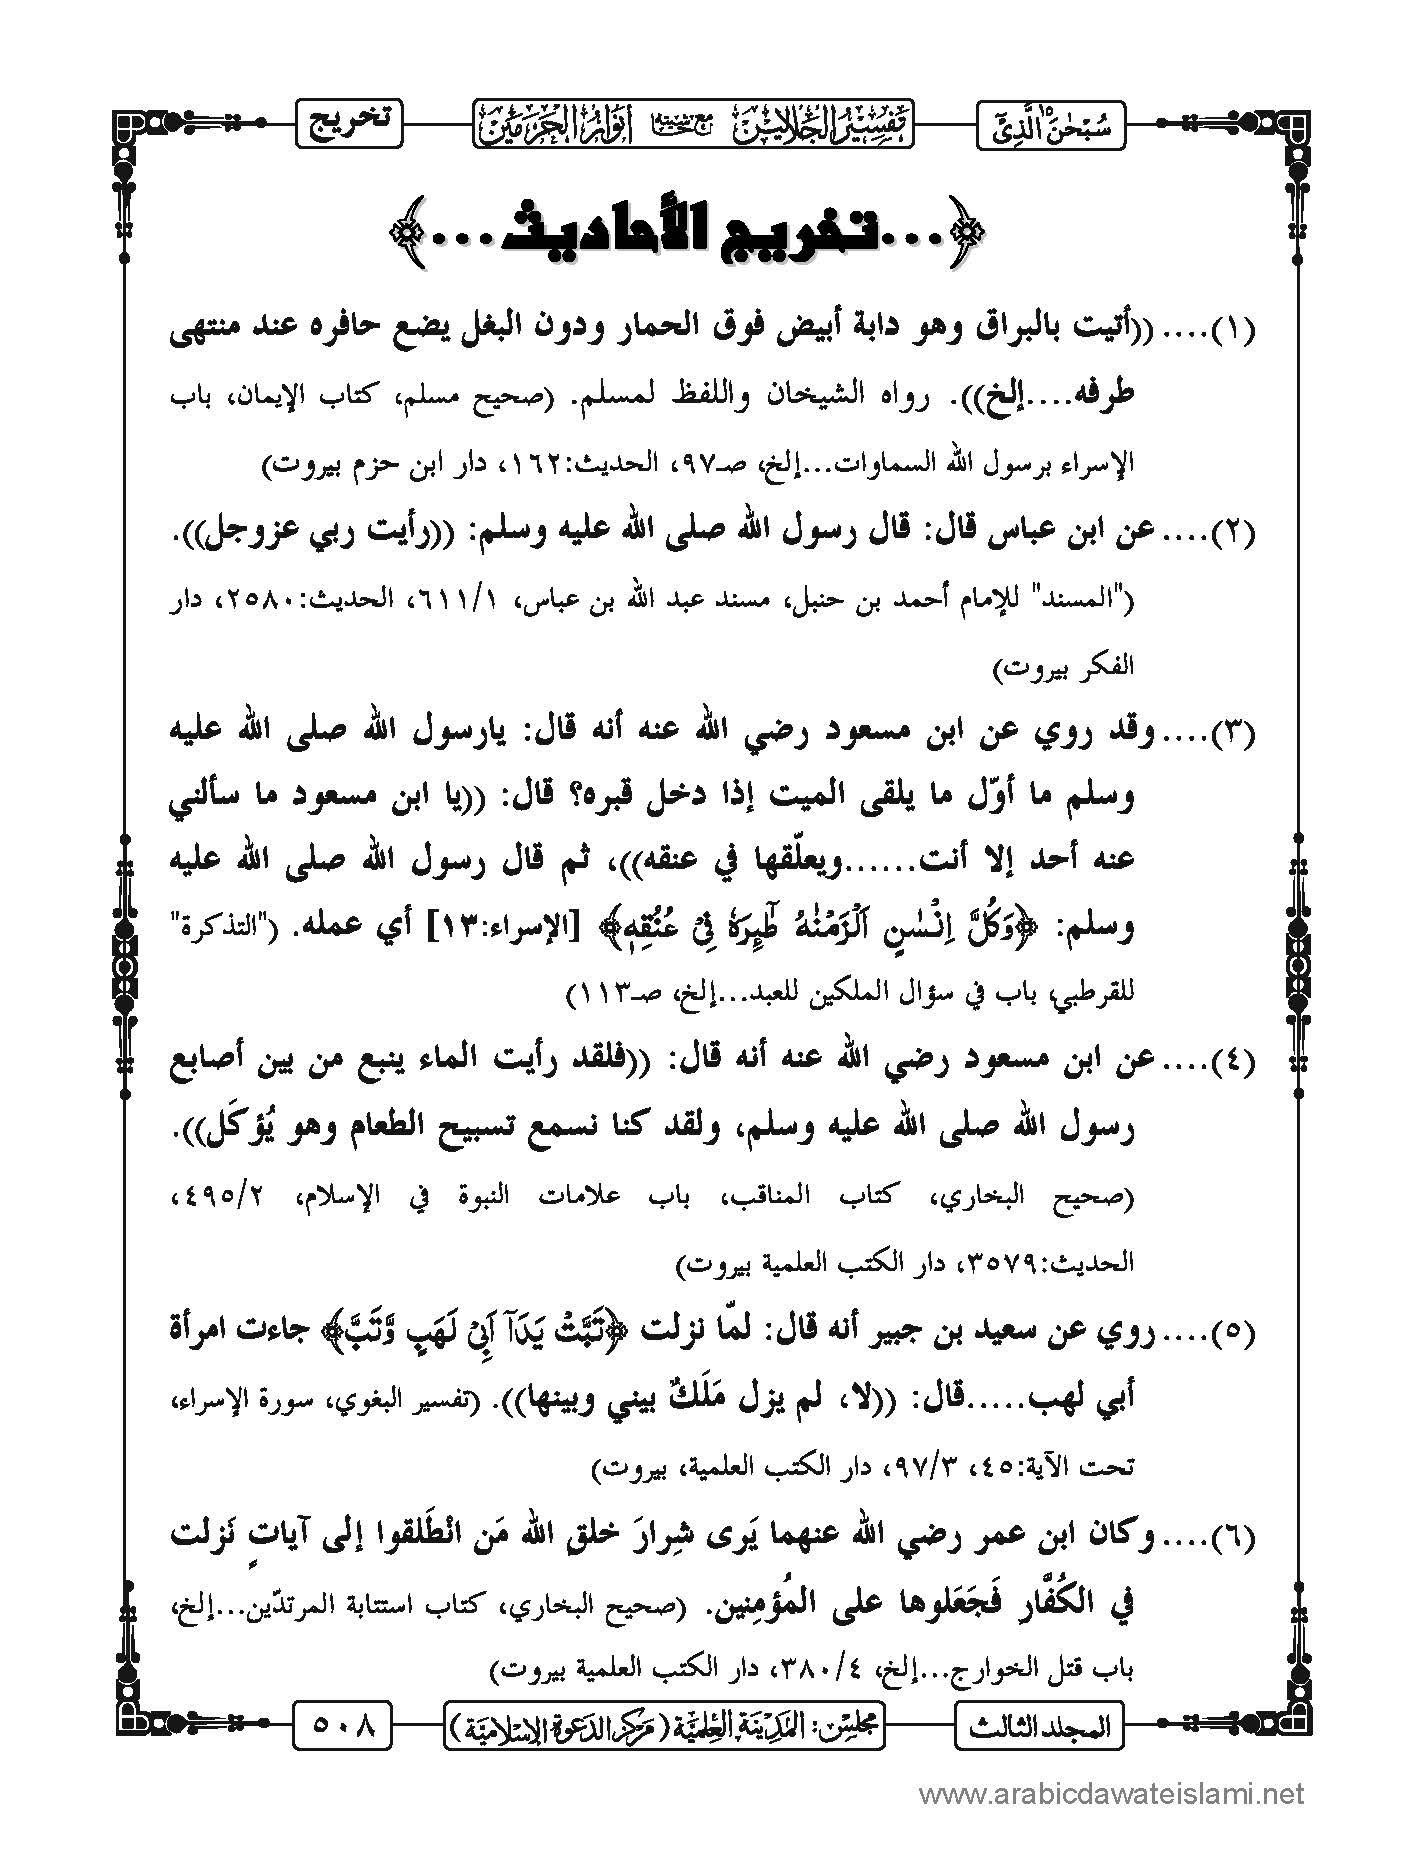 سُبْحٰنَ الَّذِیْۤ
تفسير الجلالين مع حاشية أنوار الحرمين
تخريج
...تخريج الأحاديث...
(١)....((أتيت بالبراق وهو دابة أبيض فوق الحمار ودون البغل يضع حافره عند منتهى
طرفه....إلخ)). رواه الشيخان واللفظ لمسلم. (صحيح مسلم، كتاب الإيمان، باب
الإسراء برسول الله السماوات...إلخ، صـ٩٧، الحديث:١٦٢، دار ابن حزم بيروت)
(٢)....عن ابن عباس قال: قال رسول الله صلى الله عليه وسلم: ((رأيت ربي عزوجل)).
("المسند" للإمام أحمد بن حنبل، مسند عبد الله بن عباس، ٦١١/١، الحديث:٢٥٨٠، دار
الفكر بيروت)
(٣)....وقد روي عن ابن مسعود رضي الله عنه أنه قال: يارسول الله صلى الله عليه
وسلم ما أوّل ما يلقى الميت إذا دخل قبره؟ قال: ((يا ابن مسعود ما سألني
عنه أحد إلا أنت......ويعلّقها في عنقه))، ثم قال رسول الله صلى الله عليه
وسلم: ﴿وَكُلَّ اِنْسٰنٍ اَلْزَمْنٰهُ طٰٓئِرَهٗ فِیْ عُنُقِهٖ﴾ [الإسراء:١٣] أي عمله. ("التذكرة"
للقرطبي، باب في سؤال الملكين للعبد...إلخ، صـ١١٣)
(٤)....عن ابن مسعود رضي الله عنه أنه قال: ((فلقد رأيت الماء ينبع من بين أصابع
رسول الله صلى الله عليه وسلم، ولقد كنا نسمع تسبيح الطعام وهو يُؤكَل)).
(صحيح البخاري، كتاب المناقب، باب علامات النبوة في الإسلام، ٤٩٥/٢،
الحديث:٣٥٧٩، دار الكتب العلمية بيروت)
(٥)....روي عن سعيد بن جبير أنه قال: لمّا نزلت ﴿تَبَّتْ یَدَاۤ اَبِیْ لَهَبٍ وَّتَبَّ﴾ جاءت امرأة
أبي لهب.....قال: ((لا، لم يزل مَلَكٌ بيني وبينها)). (تفسير البغوي، سورة الإسراء،
تحت الآية:٤٥، ٩٧/٣، دار الكتب العلمية، بيروت)
(٦)....وكان ابن عمر رضي الله عنهما يَرى شِرارَ خلقِ الله مَن انْطَلقوا إلى آياتٍ نَزلت
في الكُفَّارِ فَجَعَلوها على المُؤمِنين. (صحيح البخاري، كتاب استتابة المرتدّين...إلخ،
باب قتل الخوارج...إلخ، ٣٨٠/٤، دار الكتب العلمية بيروت)
المجلد الثالث
مجلس: المَدِينَة العِلميَّة (مركز الدعوة الإسلاميّة)
٥٠٨
www.arabicdawateislami.net